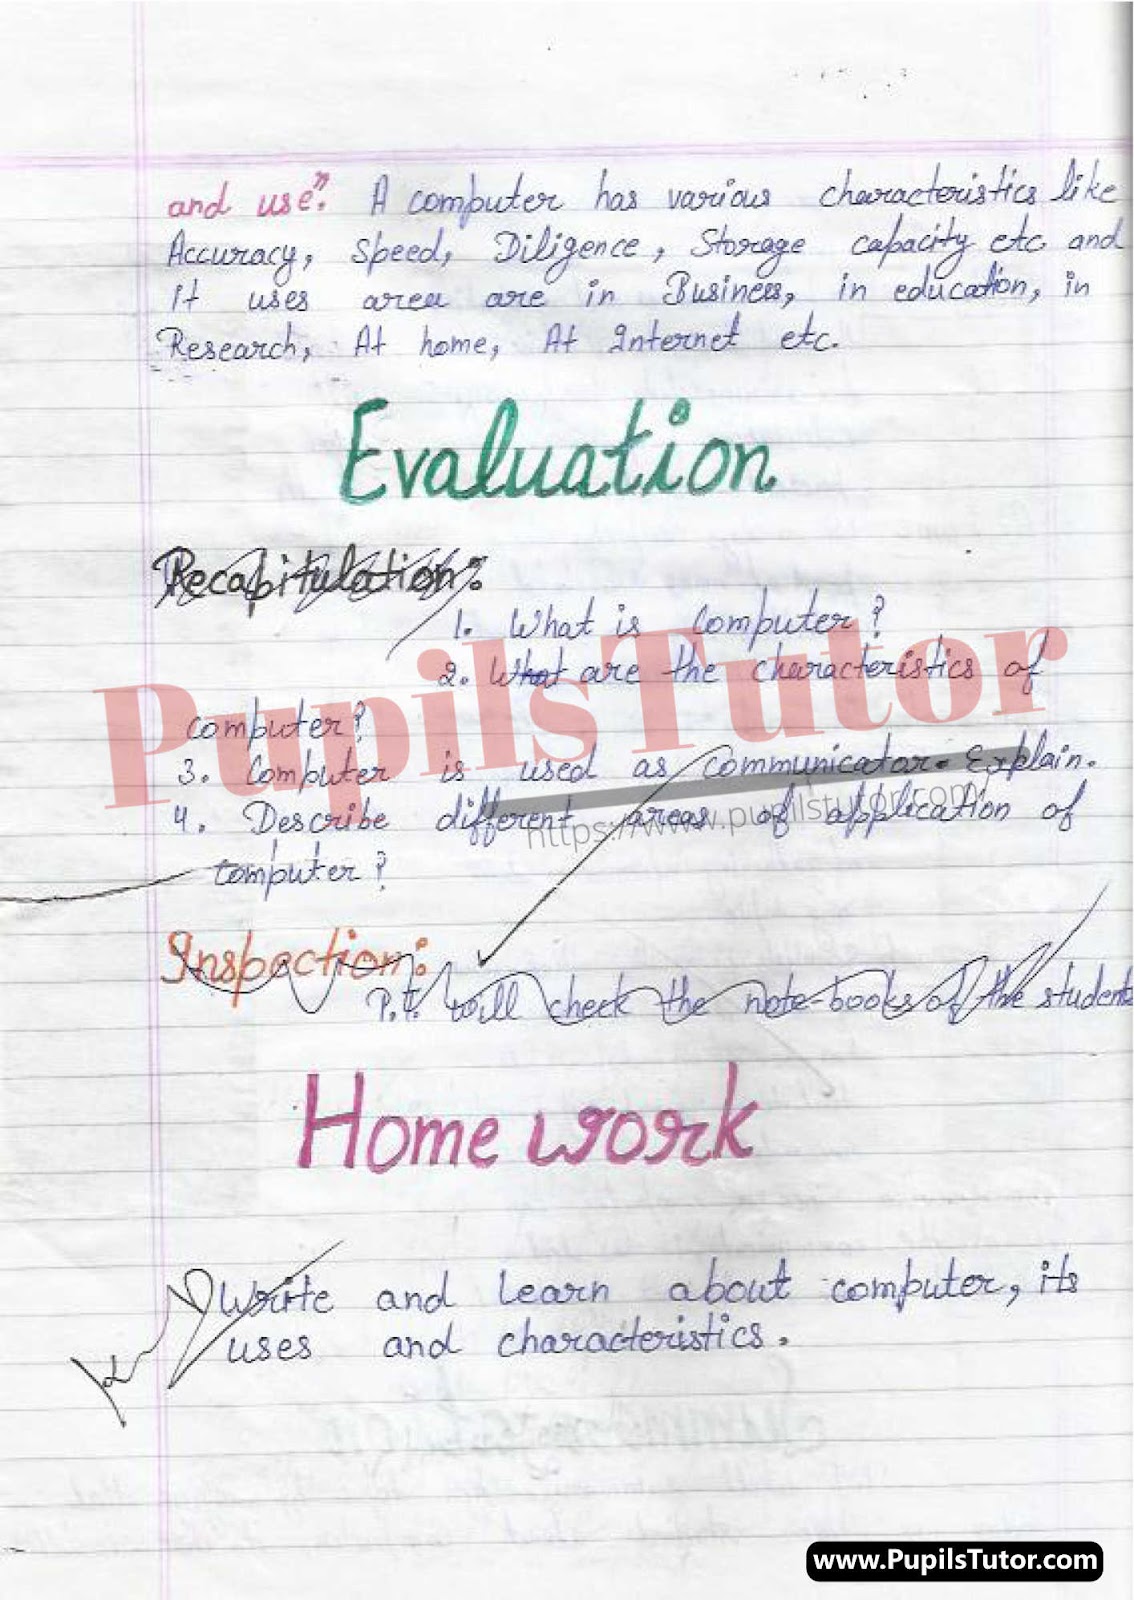 and use". A computer has various characteristics like
Accuracy, Speed, Diligence, Storage capacity etc and
it uses area are in Business, in education, in
Research, At home, At Internet etc.
Evaluation
Recapitulation:
1. What is computer?
2. What are the characteristics of
computer?
3. Computer is used as communicator. Explain.
4. Describe different areas of application of
computer?
PupilsTutor
https://www.pupilstutor.com/
Inspection:
P.t. will check the note-books of the students
Home work
Write and learn about computer, its
uses and characteristics.
www.PupilsTutor.com